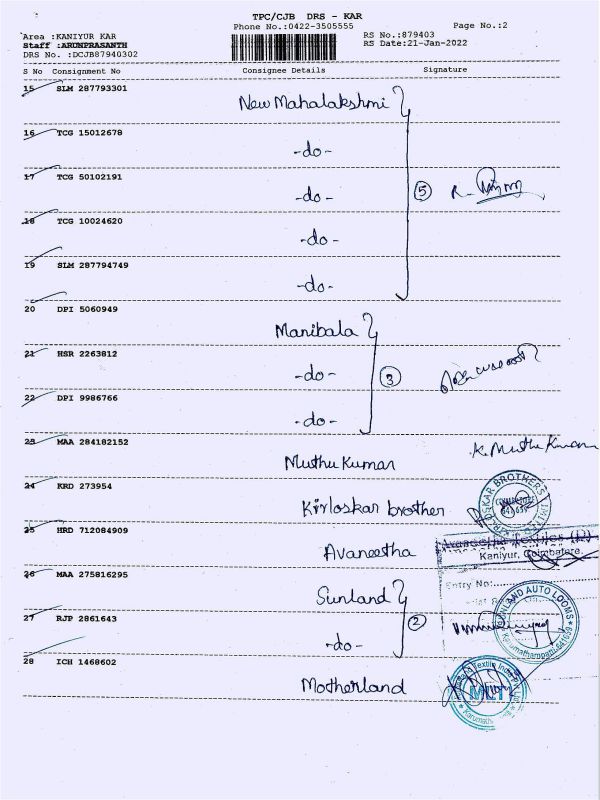 TPC/CJB DRS - KAR
Phone No.:0422-3505555
Page No.:2
Area :KANIYUR KAR
RS No.:879403
Staff :ARUNPRASANTH
RS Date:21-Jan-2022
DRS No. :DCJB87940302
S No Consignment No Consignee Details Signature
15 SLM 287793301
New Mahalakshmi
16 TCG 15012678
-do-
17 TCG 50102191
-do-
5
18 TCG 10024620
-do-
19 SLM 287794749
-do-
20 DPI 5060949
Manibala
21 HSR 2263812
-do-
3
22 DPI 9986766
-do-
23 MAA 284182152
Muthu Kumar
K. Muthu Kumar
24 KRD 273954
Kirloskar brother
25 HRD 712084909
Avaneetha
Kaniyur, Coimbatore.
26 MAA 275816295
Sunland
Entry No:
27 RJP 2861643
-do-
2
AUTO LOOMS
28 ICH 1468602
Motherland